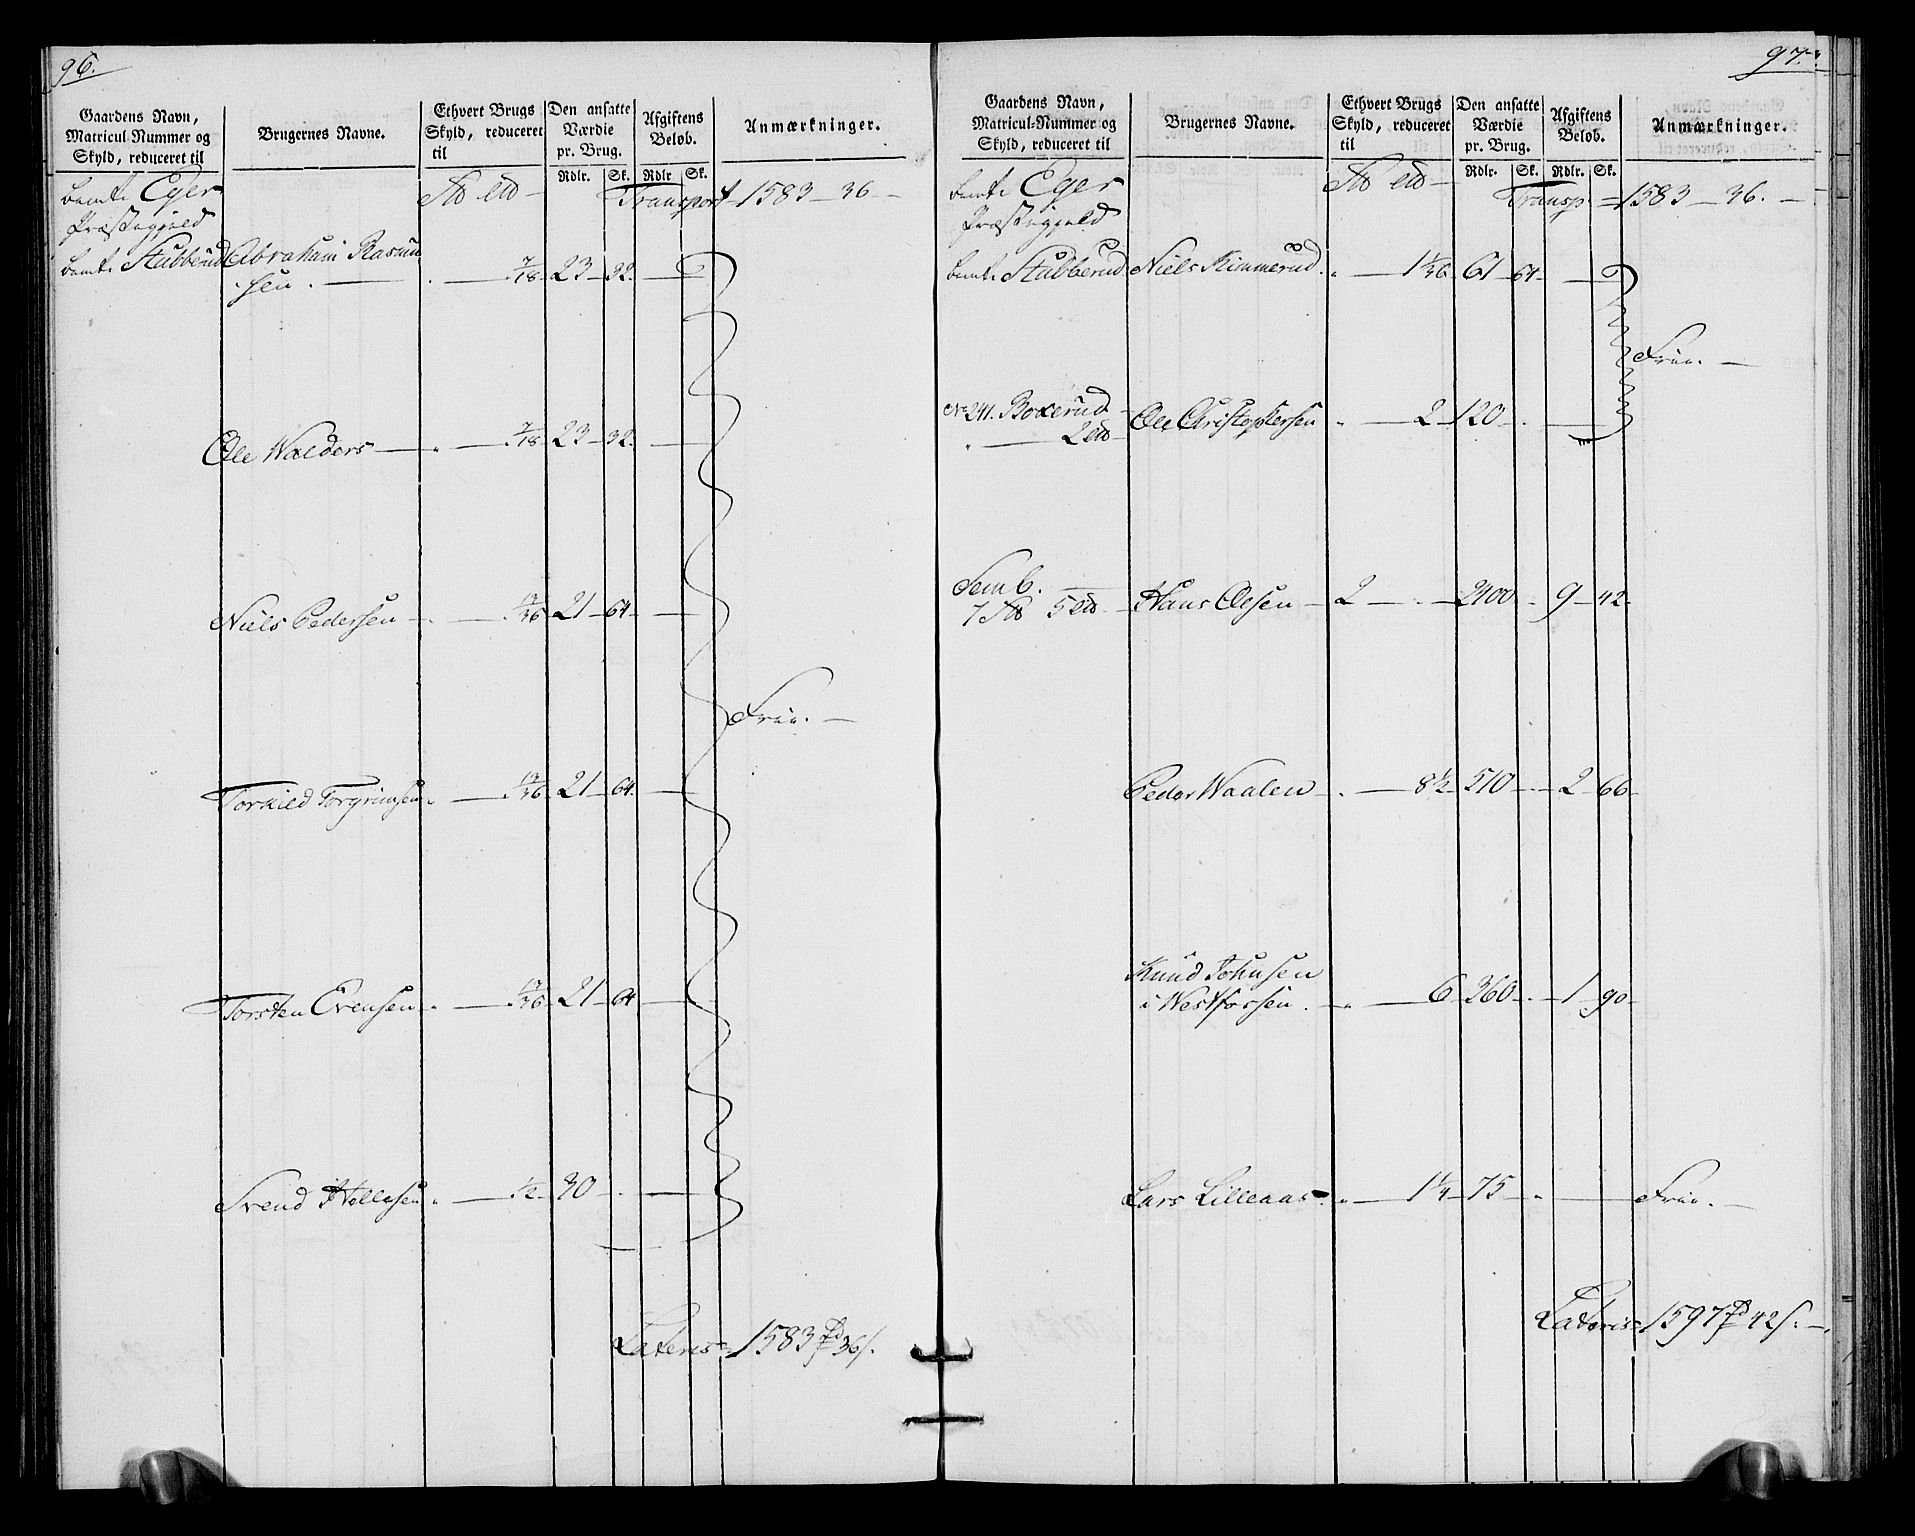 96.
Gaardens Navn, Matricul-Nummer og Skyld, reduceret til
Brugernes Navne.
Ethvert Brugs Skyld, reduceret til
Den ansatte Værdie pr. Brug.
Afgiftens Beløb.
Anmærkninger.
Rdlr. Sk. Rdlr Sk.
bemte Eger Transport 1583 - 36 -
Præstegjeld
bemte Stubberud Abraham Rasmu
sen. - 7/18 23 - 32.
Ole Walders - 7/18 23 - 32.
Niels Pedersen - 13/36 21 - 64
Frie. -
Torkild Torgrimsen - 13/36 21 - 64.
Torsten Evensen - 13/36 21 - 64
Svend Hellesen - 1/2 - 30 -
Lateris 1583 rd 36 s.
97.
Gaardens Navn, Matricul-Nummer og Skyld, reduceret til
Brugernes Navne.
Ethvert Brugs Skyld, reduceret til
Den ansatte Værdie pr. Brug.
Afgiftens Beløb.
Anmærkninger.
Rdlr. Sk. Rdlr. Sk.
bemte Eger Transp = 1583 - 36. -
Præstegjeld
bemte Stubberud Niels Kimmerud. - 1 1/36 61 - 64
Frie. -
No 241. Boxerud Ole Christophersen - 2 - 120 -
2
Semb. Hans Olesen - 2 - 2400 - 9 - 42.
7 5
Peder Waalen - 8 1/2 510 - 2 - 66 -
Knud Johnsen
i Westfossen. - 6 - 360 - 1 - 90 -
Lars Lilleaas - 1 1/4 - 75 - Frie. -
Lateris 1597 rd 42 s. -